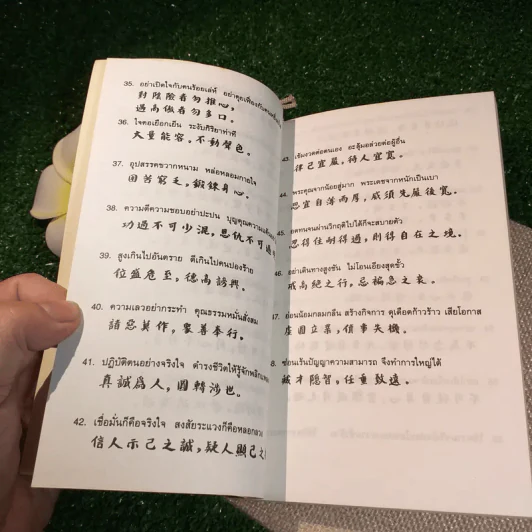 35. อย่าเปิดใจกับคนร้อยเล่ห์ อย่าคุยเฟื่องกับคน
對陰險者勿推心,
遇高傲者勿多口.
36. ใจคอเยือกเย็น ระงับกิริยาท่าที
大量能容, 不動聲色.
37. อุปสรรคขวากหนาม หล่อหลอมกายใจ
困苦窮乏, 鍛鍊身心.
38. ความดีความชอบอย่าปะปน บุญคุณความ
功過不可少混, 恩仇不可過
39. สูงเกินไปอันตราย ดีเกินไปคนปองร้าย
位盛危至, 德高謗興.
40. ความเลวอย่ากระทำ คุณธรรมหมั่นสั่งสม
諸惡莫作, 眾善奉行.
41. ปฏิบัติตนอย่างจริงใจ ดำรงชีวิตให้รู้จักพลิก
真誠為人, 圓轉涉世.
42. เชื่อมั่นก็คือจริงใจ สงสัยระแวงก็คือหลอก
信人示己之誠, 疑人顯己之
43. เข้มงวดต่อตนเอง อะลุ้มอล่วยต่อผู้อื่น
律己宜嚴, 待人宜寬.
พระคุณจากน้อยสู่มาก พระเดชจากหนักเป็นเบา
恩宜自薄而厚, 威須先嚴後寬.
45. อดทนจนผ่านวิกฤติไปได้ก็จะสบายตัว
忍得住耐得過, 則得自在之境.
46. อย่าเดินทางสูงชัน ไม่โอนเอียงสุดขั้ว
戒高絕之行, 忌褊急之衷.
อ่อนน้อมกลมกลืน สร้างกิจการ ดุเดือดก้าวร้าว เสียโอกาส
虛圓立業, 僨事失機.
8. ซ่อนเร้นปัญญาความสามารถ จึงทำการใหญ่ได้
藏才隱智, 任重致遠.